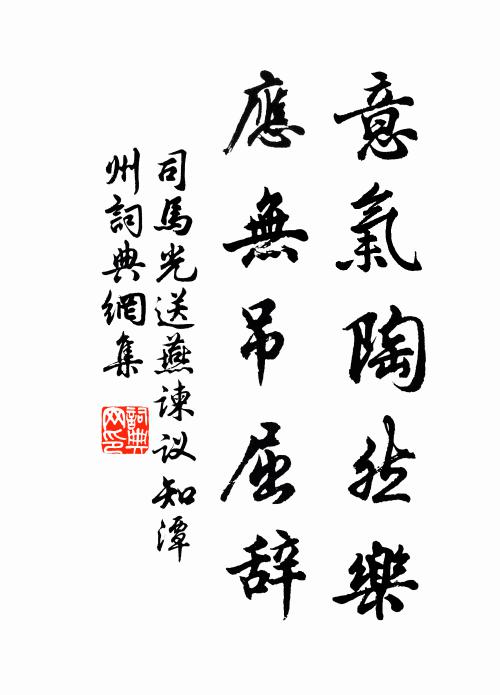 意氣陶然樂
應無吊屈辞
司馬光送燕諫议知潭
州詞典網集
詞典
网印